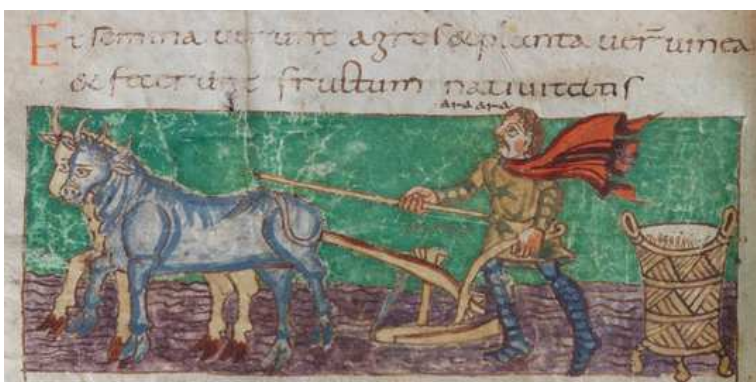 Et semina uerunt agros & planta uer̅ uinea
& fecerunt fructum natiuitatis
ara ara